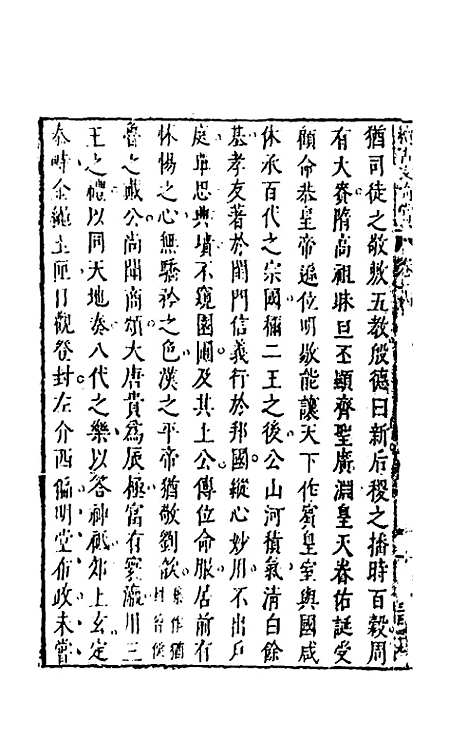 猶司徒之敬敷五教殷德日新后稷之播時百穀周
有大賚隋高祖昧旦丕顯齊聖廣淵皇天眷佑誕受
顧命恭皇帝遜位明敭能讓天下作賓皇室與國咸
休承百代之宗國稱二王之後公山河積氣清白餘
基孝友著於閨門信義行於邦國縱心妙用不出戶
庭單思典墳不窺園圃及其土公傳位命服居前有
怵惕之心無驕矜之色漢之平帝猶敬劉歆
魯之戴公尚聞商頌大唐貴為辰極富有寰瀛用三
王之禮以同天地奏八代之樂以答神祇郊上玄定
泰畤金繩玉匣日觀登封左介西偏明堂布政未嘗